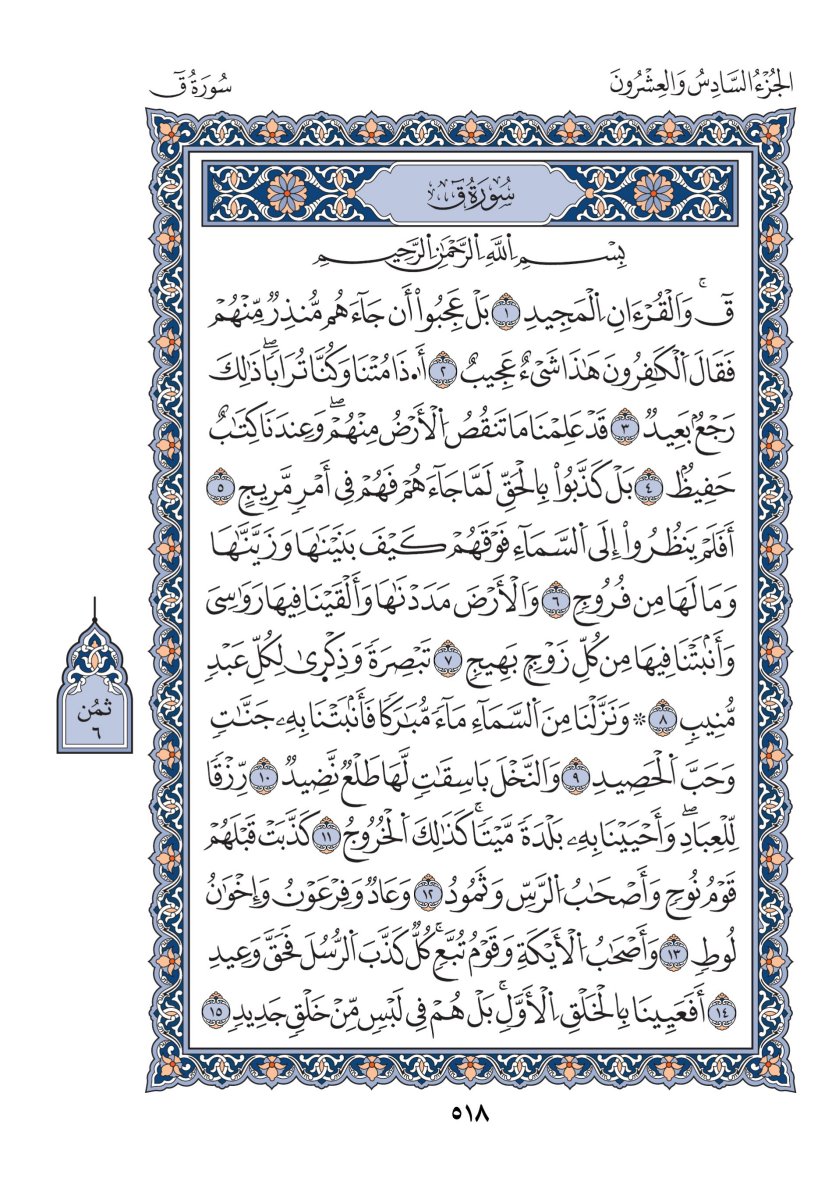 الجُزْءُ السَّادِسُ وَالعِشْرُونَ
سُورَةُ قٓ
سُورَةُ قٓ
بِسْمِ اِ۬للَّهِ اِ۬لرَّحْمَٰنِ اِ۬لرَّحِيمِ
قٓۚ وَالْقُرْءَانِ اِ۬لْمَجِيدِ ١ بَلْ عَجِبُوٓاْ أَن جَآءَهُم مُّنذِرٞ مِّنْهُمْ
فَقَالَ اَ۬لْكَٰفِرُونَ هَٰذَا شَےْءٌ عَجِيبٌ ٢ أَ.ذَا مُتْنَا وَكُنَّا تُرَاباٗۖ ذَٰلِكَ
رَجْعُۢ بَعِيدٞ ٣ قَدْ عَلِمْنَا مَا تَنقُصُ اُ۬لْأَرْضُ مِنْهُمْۖ وَعِندَنَا كِتَٰبٌ
حَفِيظُۢ ٤ بَلْ كَذَّبُواْ بِالْحَقِّ لَمَّا جَآءَهُمْ فَهُمْ فِےٓ أَمْرٖ مَّرِيجٍ ٥
أَفَلَمْ يَنظُرُوٓاْ إِلَى اَ۬لسَّمَآءِ فَوْقَهُمْ كَيْفَ بَنَيْنَٰهَا وَزَيَّنَّٰهَا
وَمَا لَهَا مِن فُرُوجٖ ٦ وَالْأَرْضَ مَدَدْنَٰهَا وَأَلْقَيْنَا فِيهَا رَوَٰسِيَ
وَأَنۢبَتْنَا فِيهَا مِن كُلِّ زَوْجِۢ بَهِيجٖ ٧ تَبْصِرَةٗ وَذِكْر۪ىٰ لِكُلِّ عَبْدٖ
مُّنِيبٖ ٨ ۞ وَنَزَّلْنَا مِنَ اَ۬لسَّمَآءِ مَآءٗ مُّبَٰرَكاٗ فَأَنۢبَتْنَا بِهِۦ جَنَّٰتٖ
وَحَبَّ اَ۬لْحَصِيدِ ٩ وَالنَّخْلَ بَاسِقَٰتٖ لَّهَا طَلْعٞ نَّضِيدٞ ١٠ رِّزْقاٗ
لِّلْعِبَادِۖ وَأَحْيَيْنَا بِهِۦ بَلْدَةٗ مَّيْتاٗۚ كَذَٰلِكَ اَ۬لْخُرُوجُ ١١ كَذَّبَتْ قَبْلَهُمْ
قَوْمُ نُوحٖ وَأَصْحَٰبُ اُ۬لرَّسِّ وَثَمُودُ ١٢ وَعَادٞ وَفِرْعَوْنُ وَإِخْوَٰنُ
لُوطٖ ١٣ وَأَصْحَٰبُ اُ۬لْأَيْكَةِ وَقَوْمُ تُبَّعٖۚ كُلّٞ كَذَّبَ اَ۬لرُّسُلَ فَحَقَّ وَعِيدِ
١٤ أَفَعَيِينَا بِالْخَلْقِ اِ۬لْأَوَّلِۚ بَلْ هُمْ فِے لَبْسٖ مِّنْ خَلْقٖ جَدِيدٖ ١٥
ثمُن
٦
٥١٨